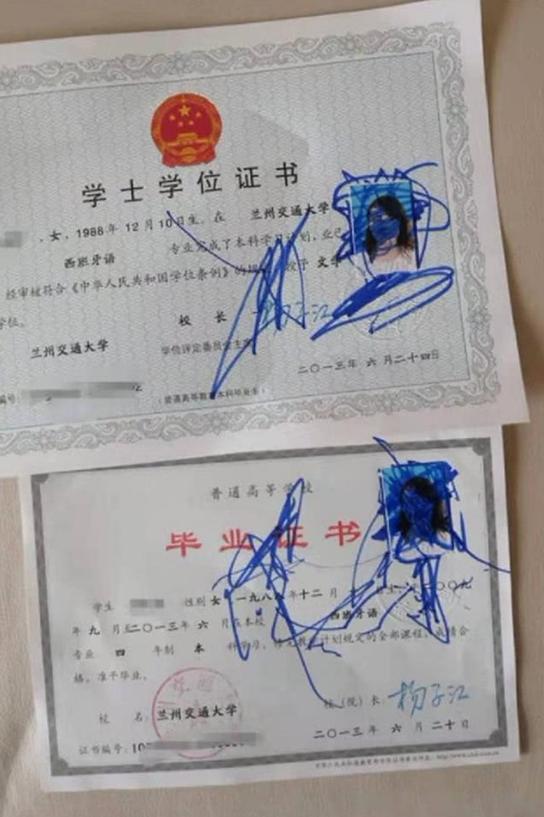 学士学位证书
,女,1988年12月10日生。在 兰州交通大学
西班牙语 专业完成了本科学习计划,业已
经审核符合《中华人民共和国学位条例》的规 授予 文学
学位。
校长 杨子江
兰州交通大学 学位评定委员会主席
编号: 二〇一三年 六 月二十四日
(普通高等教育本科毕业生)
普通高等学校
毕业证书
学生 性别 女,一九八八年十二月 日生,于二〇〇九
年九月至二〇一三年 六 月在本校 西班牙语
专业 四 年制 本 科学习,修完教学计划规定的全部课程,成绩合
格,准予毕业。
校 名:兰州交通大学 校(院)长:杨子江
证书编号:10 二〇一三年 六 月二十日